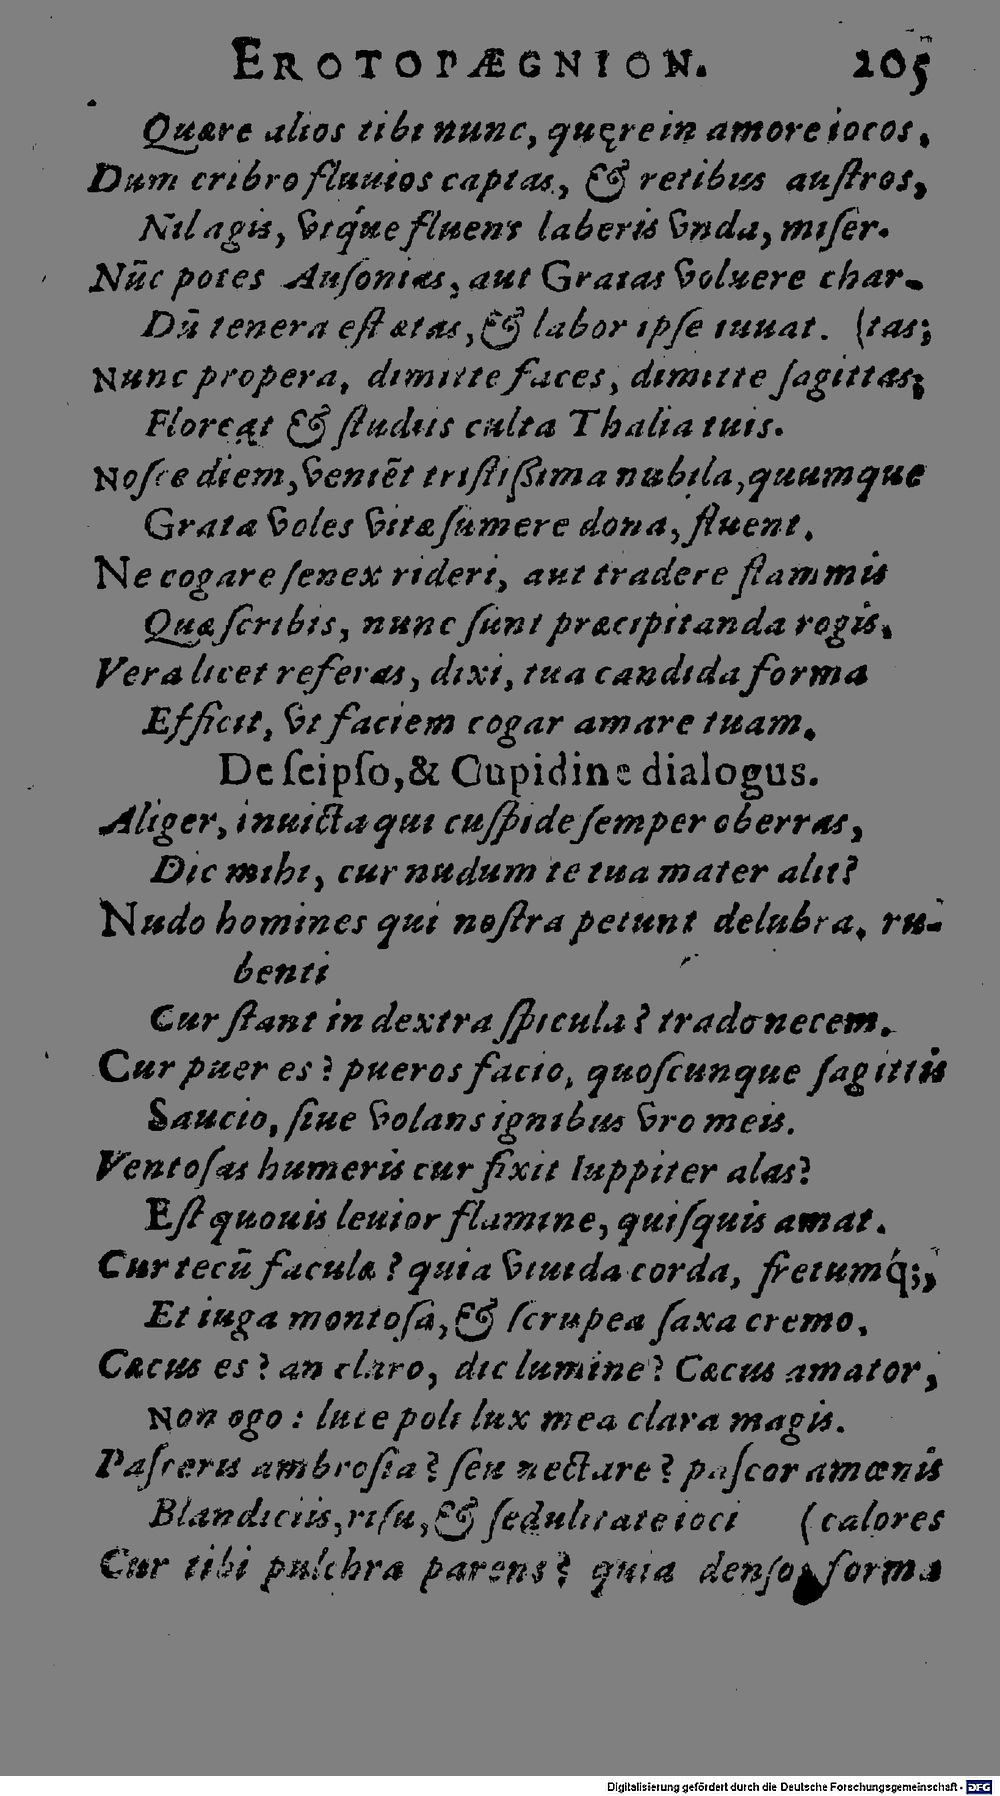 EROTOPÆGNION. 205
Quære alios tibi nunc, quęre in amore iocos,
Dum cribro fluuios captas, & retibus auſtros,
Nil agis, vtq́ue fluens laberis vnda, miſer.
Nūc potes Auſonias, aut Graias voluere char-
Dū tenera eſt ætas, & labor ipſe iuuat. (tas;
Nunc propera, dimitte faces, dimitte ſagittas;
Floreat & ſtudiis culta Thalia tuis.
Noſce diem, veniēt triſtiſſima nubila, quumque
Grata voles vitæ ſumere dona, fluent.
Ne cogare ſenex rideri, aut tradere flammis
Quæ ſcribis, nunc ſunt præcipitanda rogis.
Vera licet referas, dixi, tua candida forma
Efficit, vt faciem cogar amare tuam.
De ſeipſo, & Cupidine dialogus.
Aliger, inuicta qui cuſpide ſemper oberras,
Dic mihi, cur nudum te tua mater alit?
Nudo homines qui noſtra petunt delubra. ru-
benti
Cur ſtant in dextra ſpicula? trado necem.
Cur puer es? pueros facio, quoſcunque ſagittis
Saucio, ſiue volans ignibus vro meis.
Ventoſas humeris cur fixit Iuppiter alas?
Eſt quouis leuior flamine, quiſquis amat.
Cur tecū faculæ? quia viuida corda, fretumq́;,
Et iuga montoſa, & ſcrupea ſaxa cremo.
Cæcus es? an claro, dic lumine? Cæcus amator,
Non ego: luce poli lux mea clara magis.
Paſceris ambroſia? ſeu nectare? paſcor amœnis
Blandiciis, riſu, & ſedulitate ioci (calores
Cur tibi pulchra parens? quia denſos forma
Digitalisierung gefördert durch die Deutsche Forschungsgemeinschaft - DFG